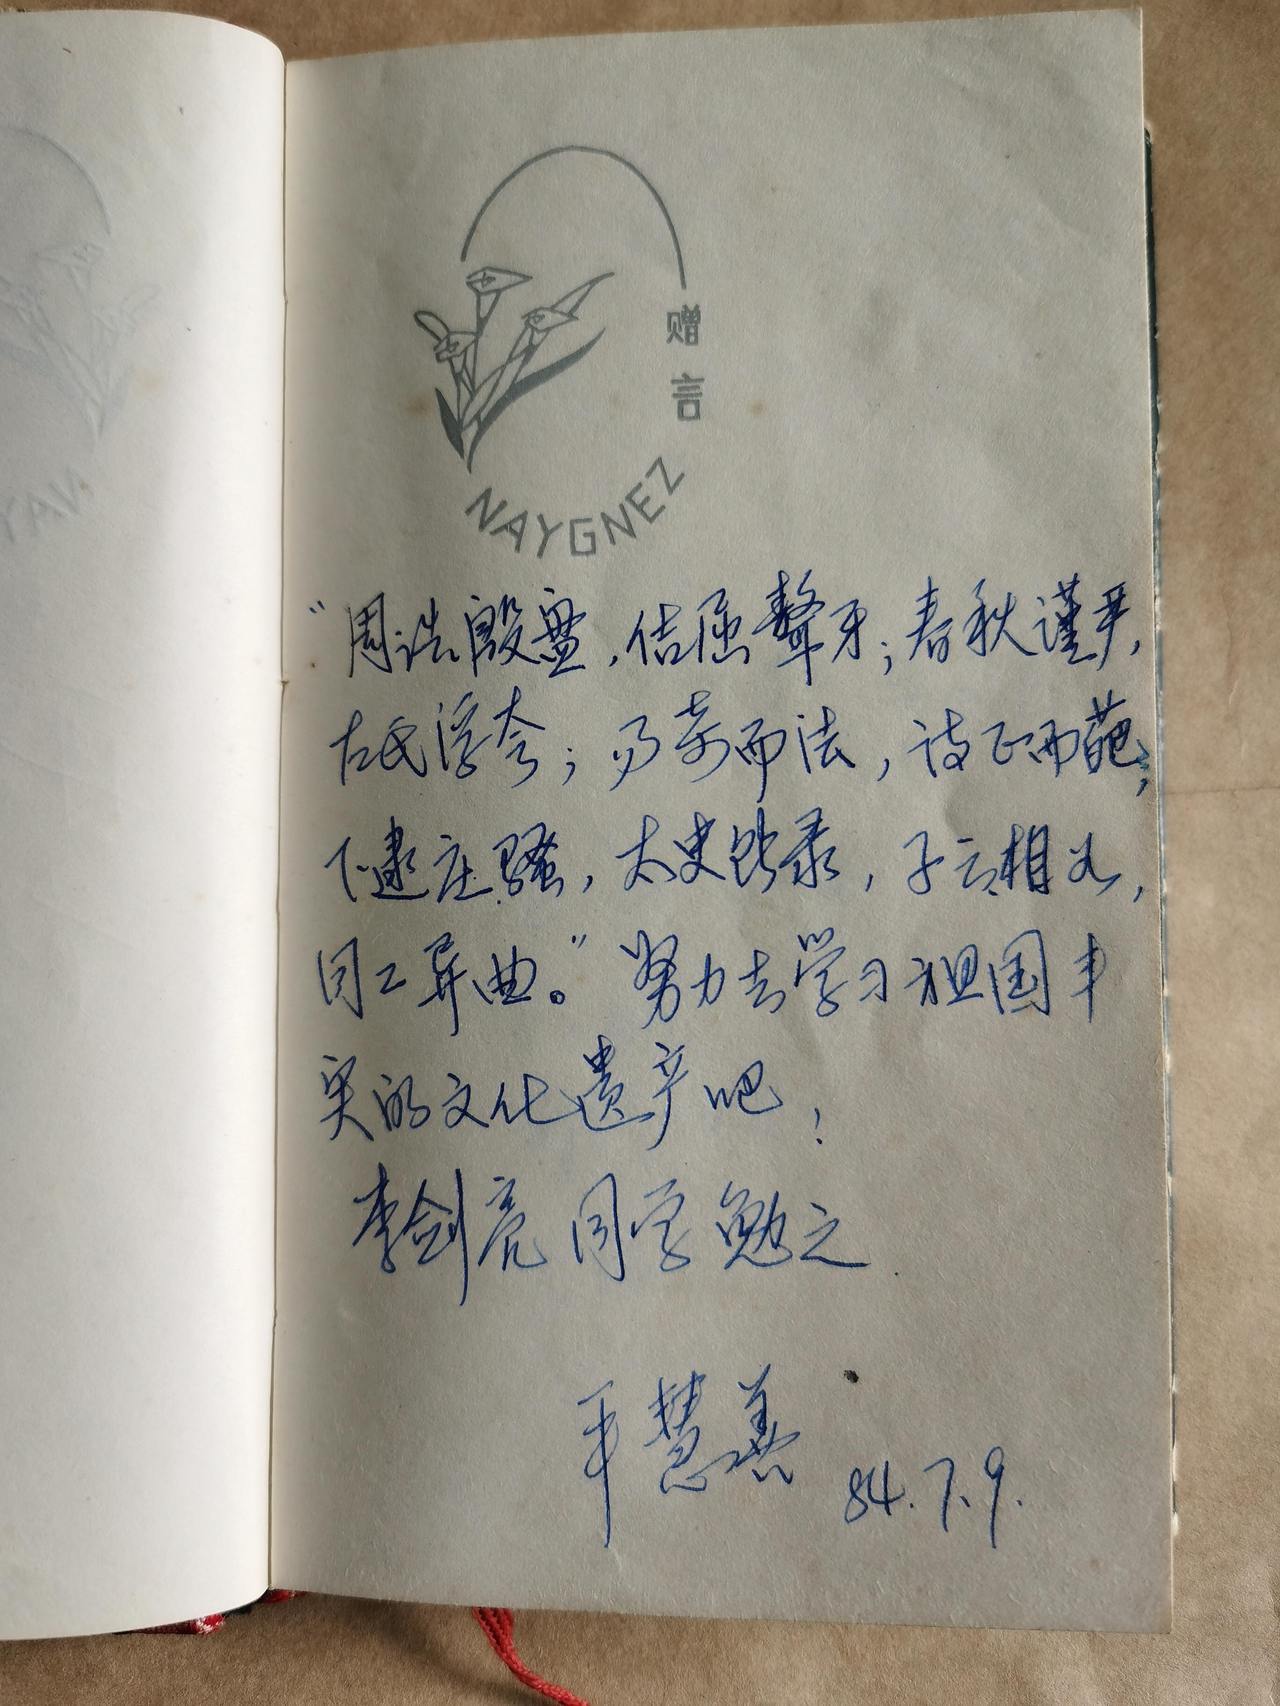 赠
言
NAYGNEZ
“周诰殷盘,佶屈聱牙;春秋谨严,
左氏浮夸;易奇而法,诗正而葩;
下逮庄骚,太史所录,子云相如,
同工异曲。”努力去学习祖国丰
实的文化遗产吧!
李剑亮同学勉之.
平慧善
84.7.9.